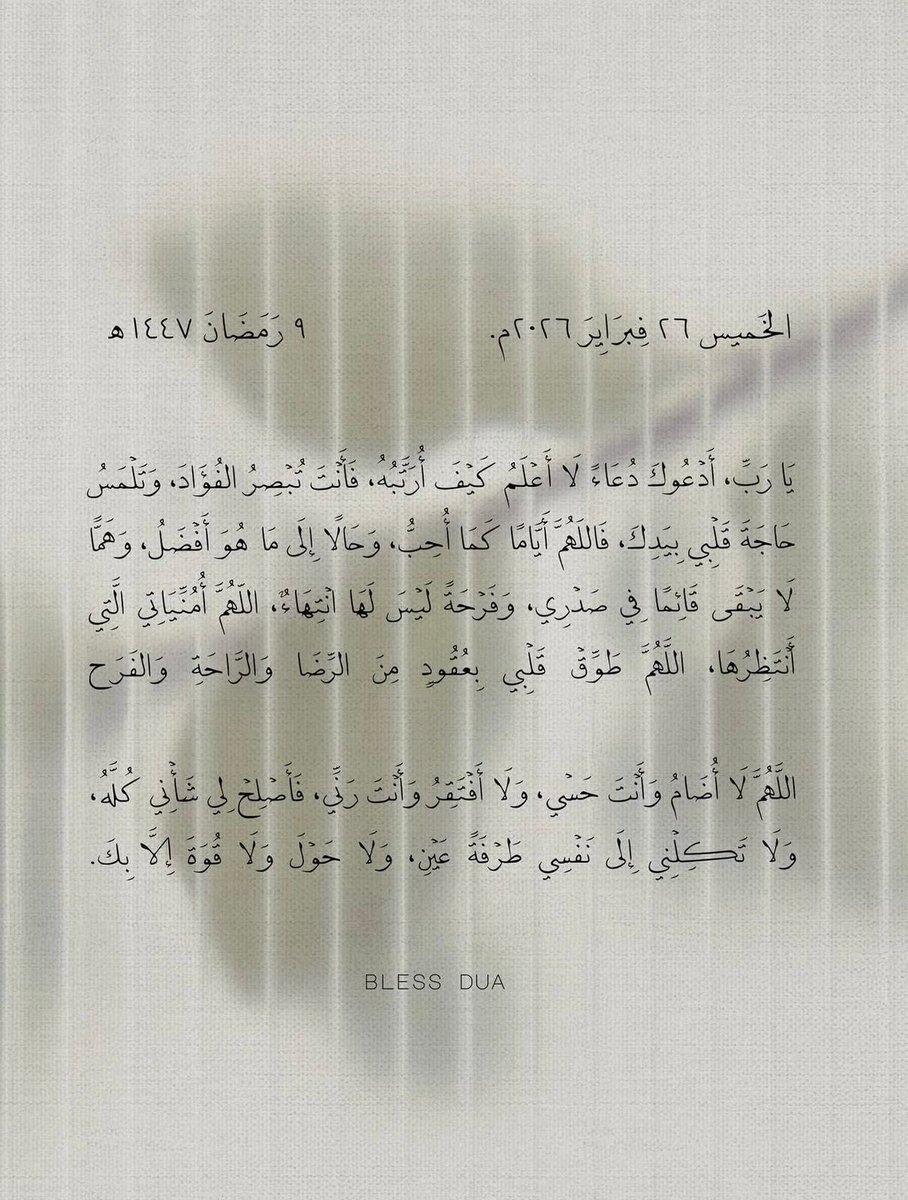 الخَميس ٢٦ فِبرَايِرَ ٢٠٢٦م. ٩ رَمَضَانَ ١٤٤٧ه
يَا رَبِّ، أَدْعُوكَ دُعَاءً لَا أَعْلَمُ كَيْفَ أُرَتِّبُهُ، فَأَنْتَ تُبْصِرُ الفُؤَادَ، وَتَلْمَسُ
حَاجَةَ قَلْبِي بِيَدِكَ، فَاللَهُمَّ أَيَّامًا كَمَا أُحِبُّ، وَحَالًا إِلَى مَا هُوَ أَفْضَلُ، وَهَمًّا
لَا يَبْقَى قَائِمًا فِي صَدْرِي، وَفَرْحَةً لَيْسَ لَهَا انْتِهَاءٌ، اللَهُمَّ أُمْنِّيَاتِي الَّتِي
أَنْتَظِرُهَا، اللَهُمَّ طَوِّقْ قَلْبِي بِعُقُودٍ مِنَ الرِّضَا وَالرَّاحَةِ وَالفَرَح
اللَّهُمَّ لَا أُضَامُ وَأَنْتَ حَسْبِي، وَلَا أَفْتَقِرُ وَأَنْتَ رَبِّي، فَأَصْلِحْ لِي شَأْنِي كُلَّهُ،
وَلَا تَكِلْنِي إِلَى نَفْسِي طَرْفَةَ عَيْنٍ، وَلَا حَوْلَ وَلَا قُوَةَ إِلَّا بِكَ.
BLESS DUA